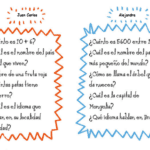 Juan Carlos
nto es 10 + 6?
l es el nombre del país
l que vives?
bre de una fruta roja
ntas patas tiene
erro?
l es el idioma que
an, en, su localidad
dad?
Alejandra
¿Cuánto es 5600 entre
¿Cuál es el nombre del
más pequeño del mundo?
¿Cómo se llama el árbol
de nueces?
¿Cuál es la capital de
Mongolia?
¿Qué idioma hablan, en,